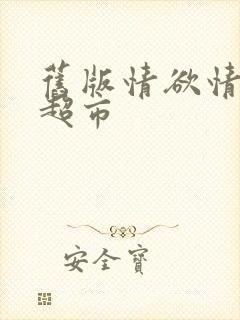 舊版情欲情
超市
安全寶